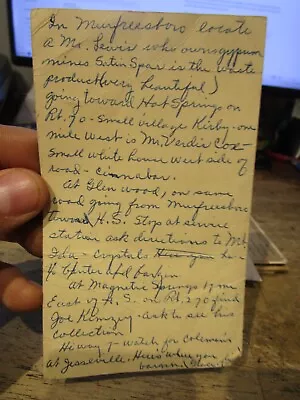 In Murfreesboro locate
a Mr. Lewis who owns gypsum
mines Satin Spar is the waste
product (very beautiful)
going toward Hot Springs on
Rt. 70 - Small village Kirby - one
mile west is Mr. Verdie Cox
small white house west side of
road - cinnabar.
At Glenwood, on same
road going from Murfreesboro
toward H.S. Stop at service
station ask directions to Mt.
Ida - crystals has a
At Magnetic Springs 17 mi
East of H.S. on Rt. 270 find
Joe Kimzey - ask to see his
collection
Hiway 7 - watch for Coleman's
at Jessieville. Here's where you